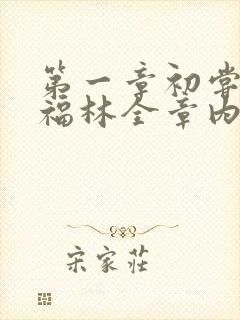 第一章初尝
福林全章内
宋家莊